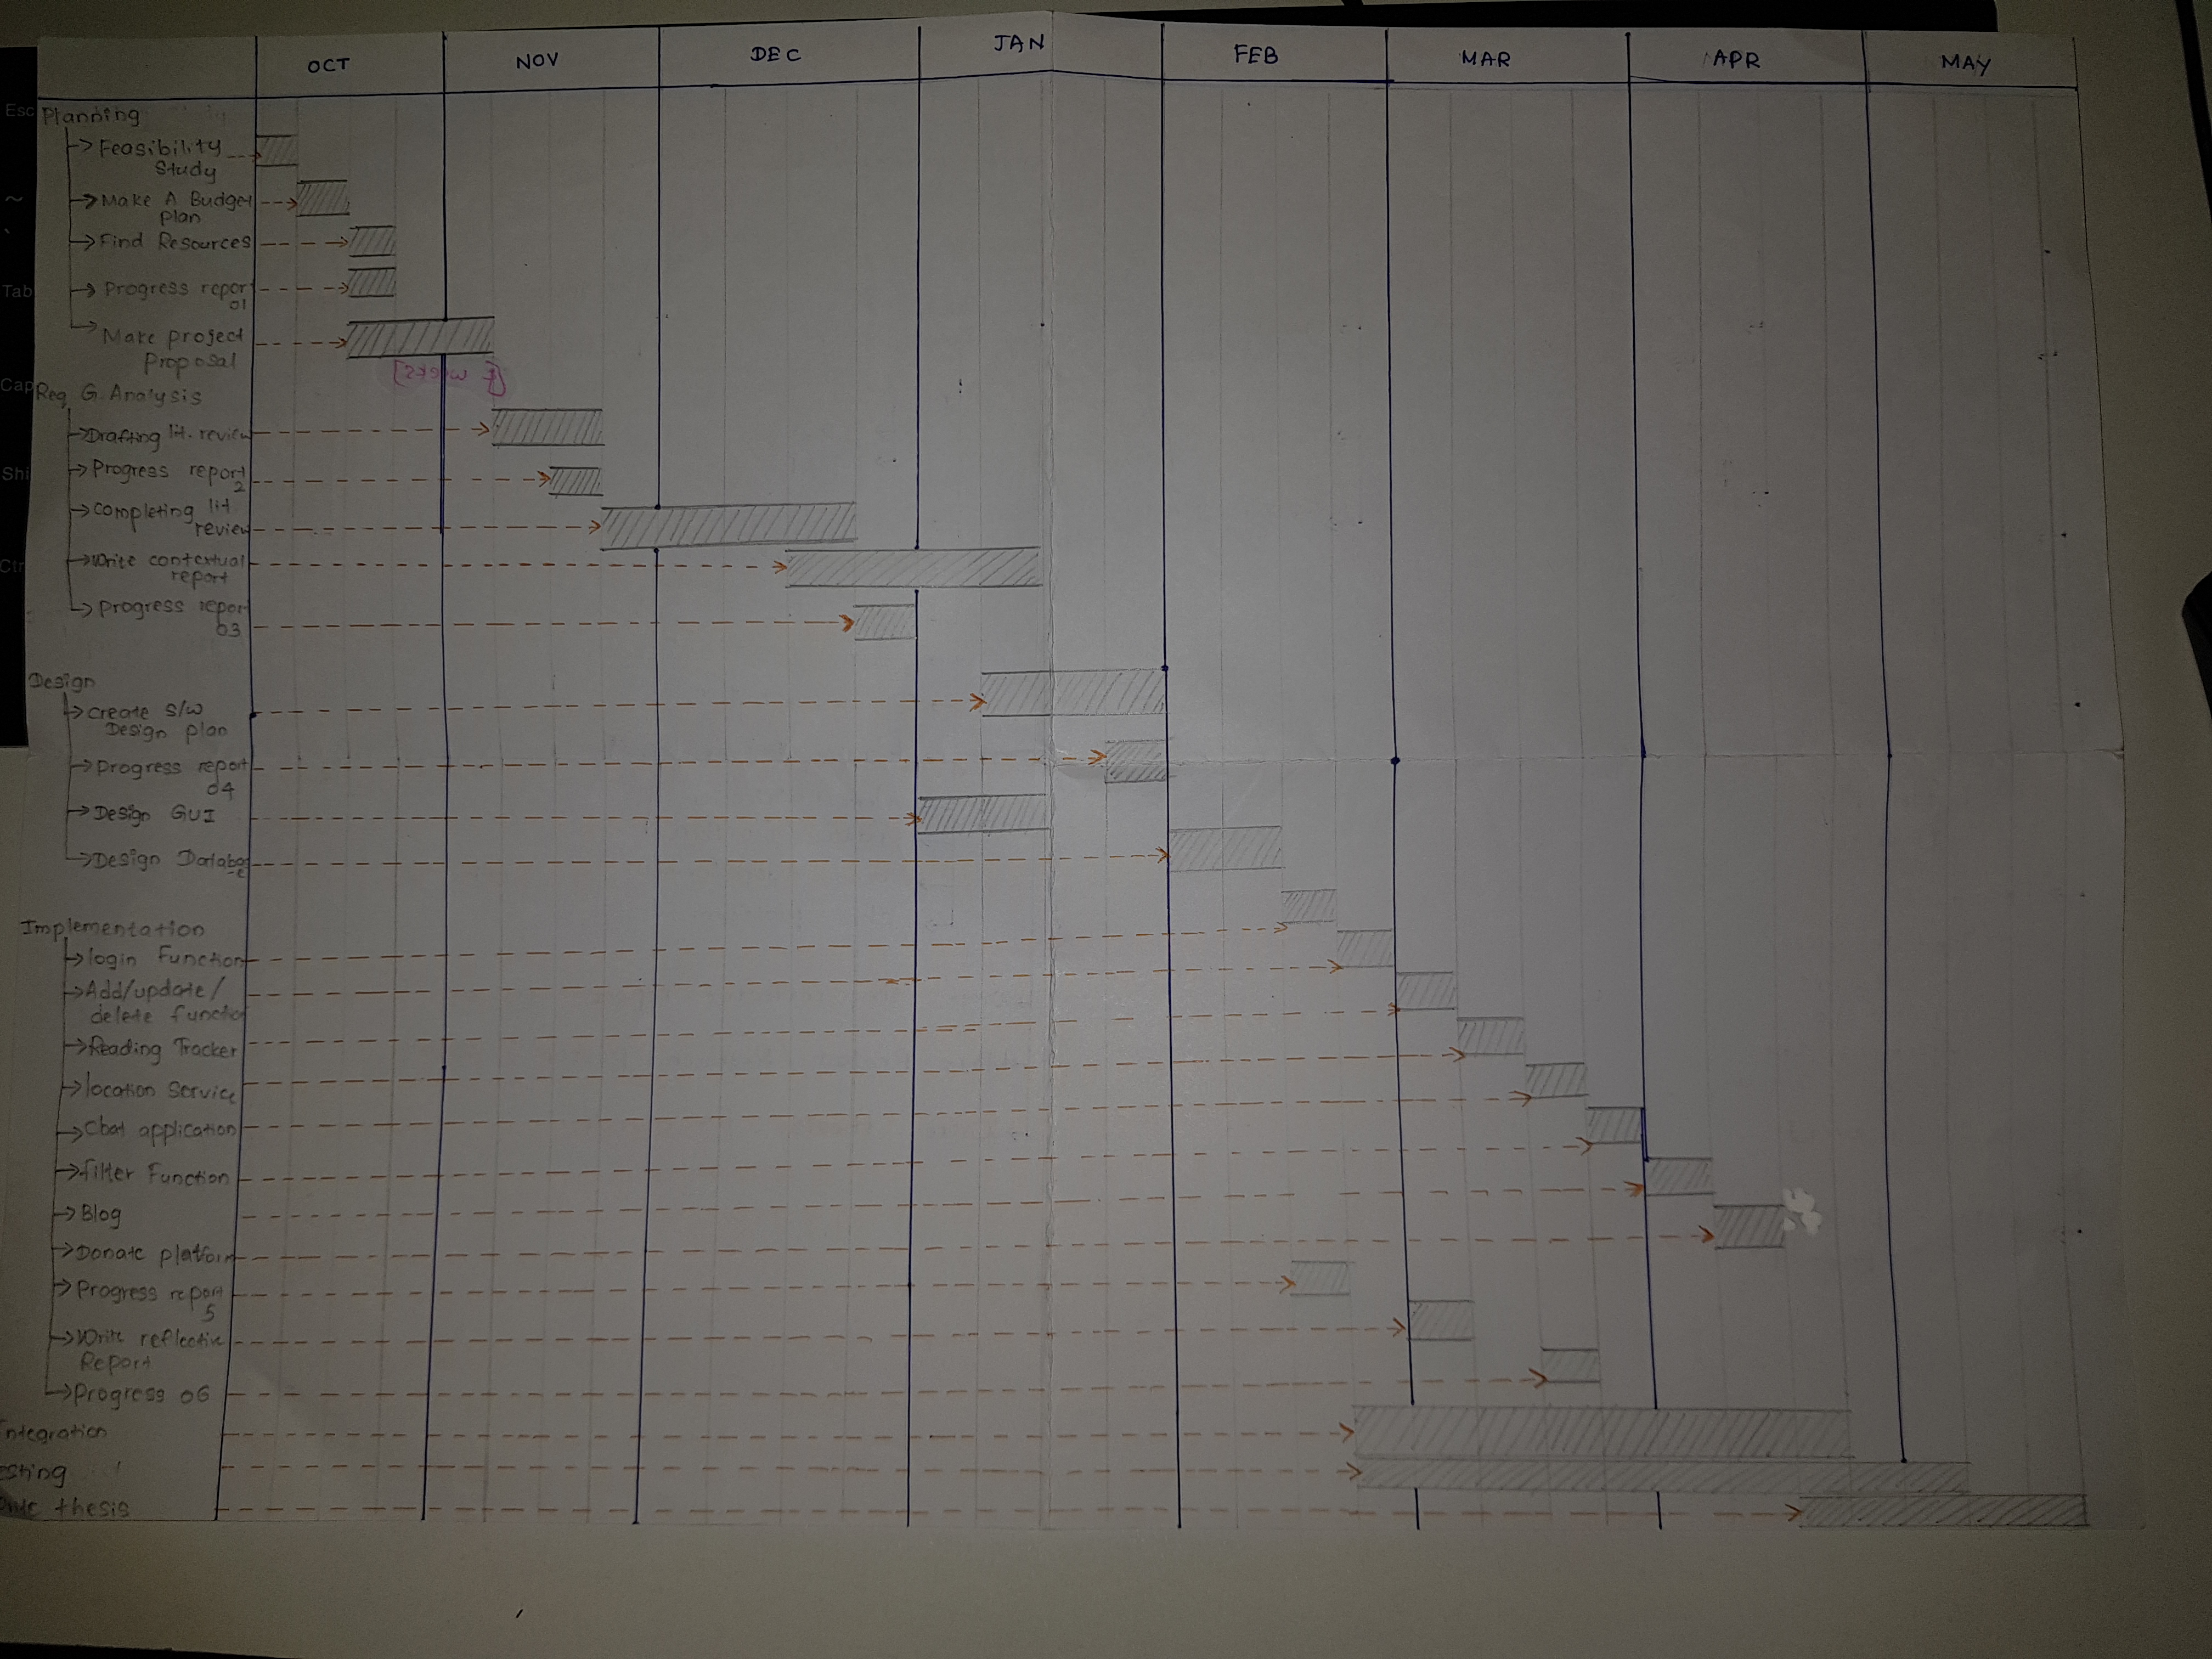 OCT NOV DEC JAN FEB MAR APR MAY
Planning
Feasibility
Study
Make A Budget
plan
Find Resources
Progress repor
01
Make project
Proposal
Req. G. Analysis
Drafting lit. review
Progress report
2
Completing lit
review
Write contextual
report
Progress report
03
Design
Create S/W
Design plan
Progress report
04
Design GUI
Design Databas
e
Implementation
login Function
Add/update/
delete function
Reading Tracker
location Service
Chat application
filter Function
Blog
Donate platform
Progress report
5
Write reflective
Report
Progress 06
ntegration
sting
thesis
Esc
~
Tab
Cap
Shi
Ctr